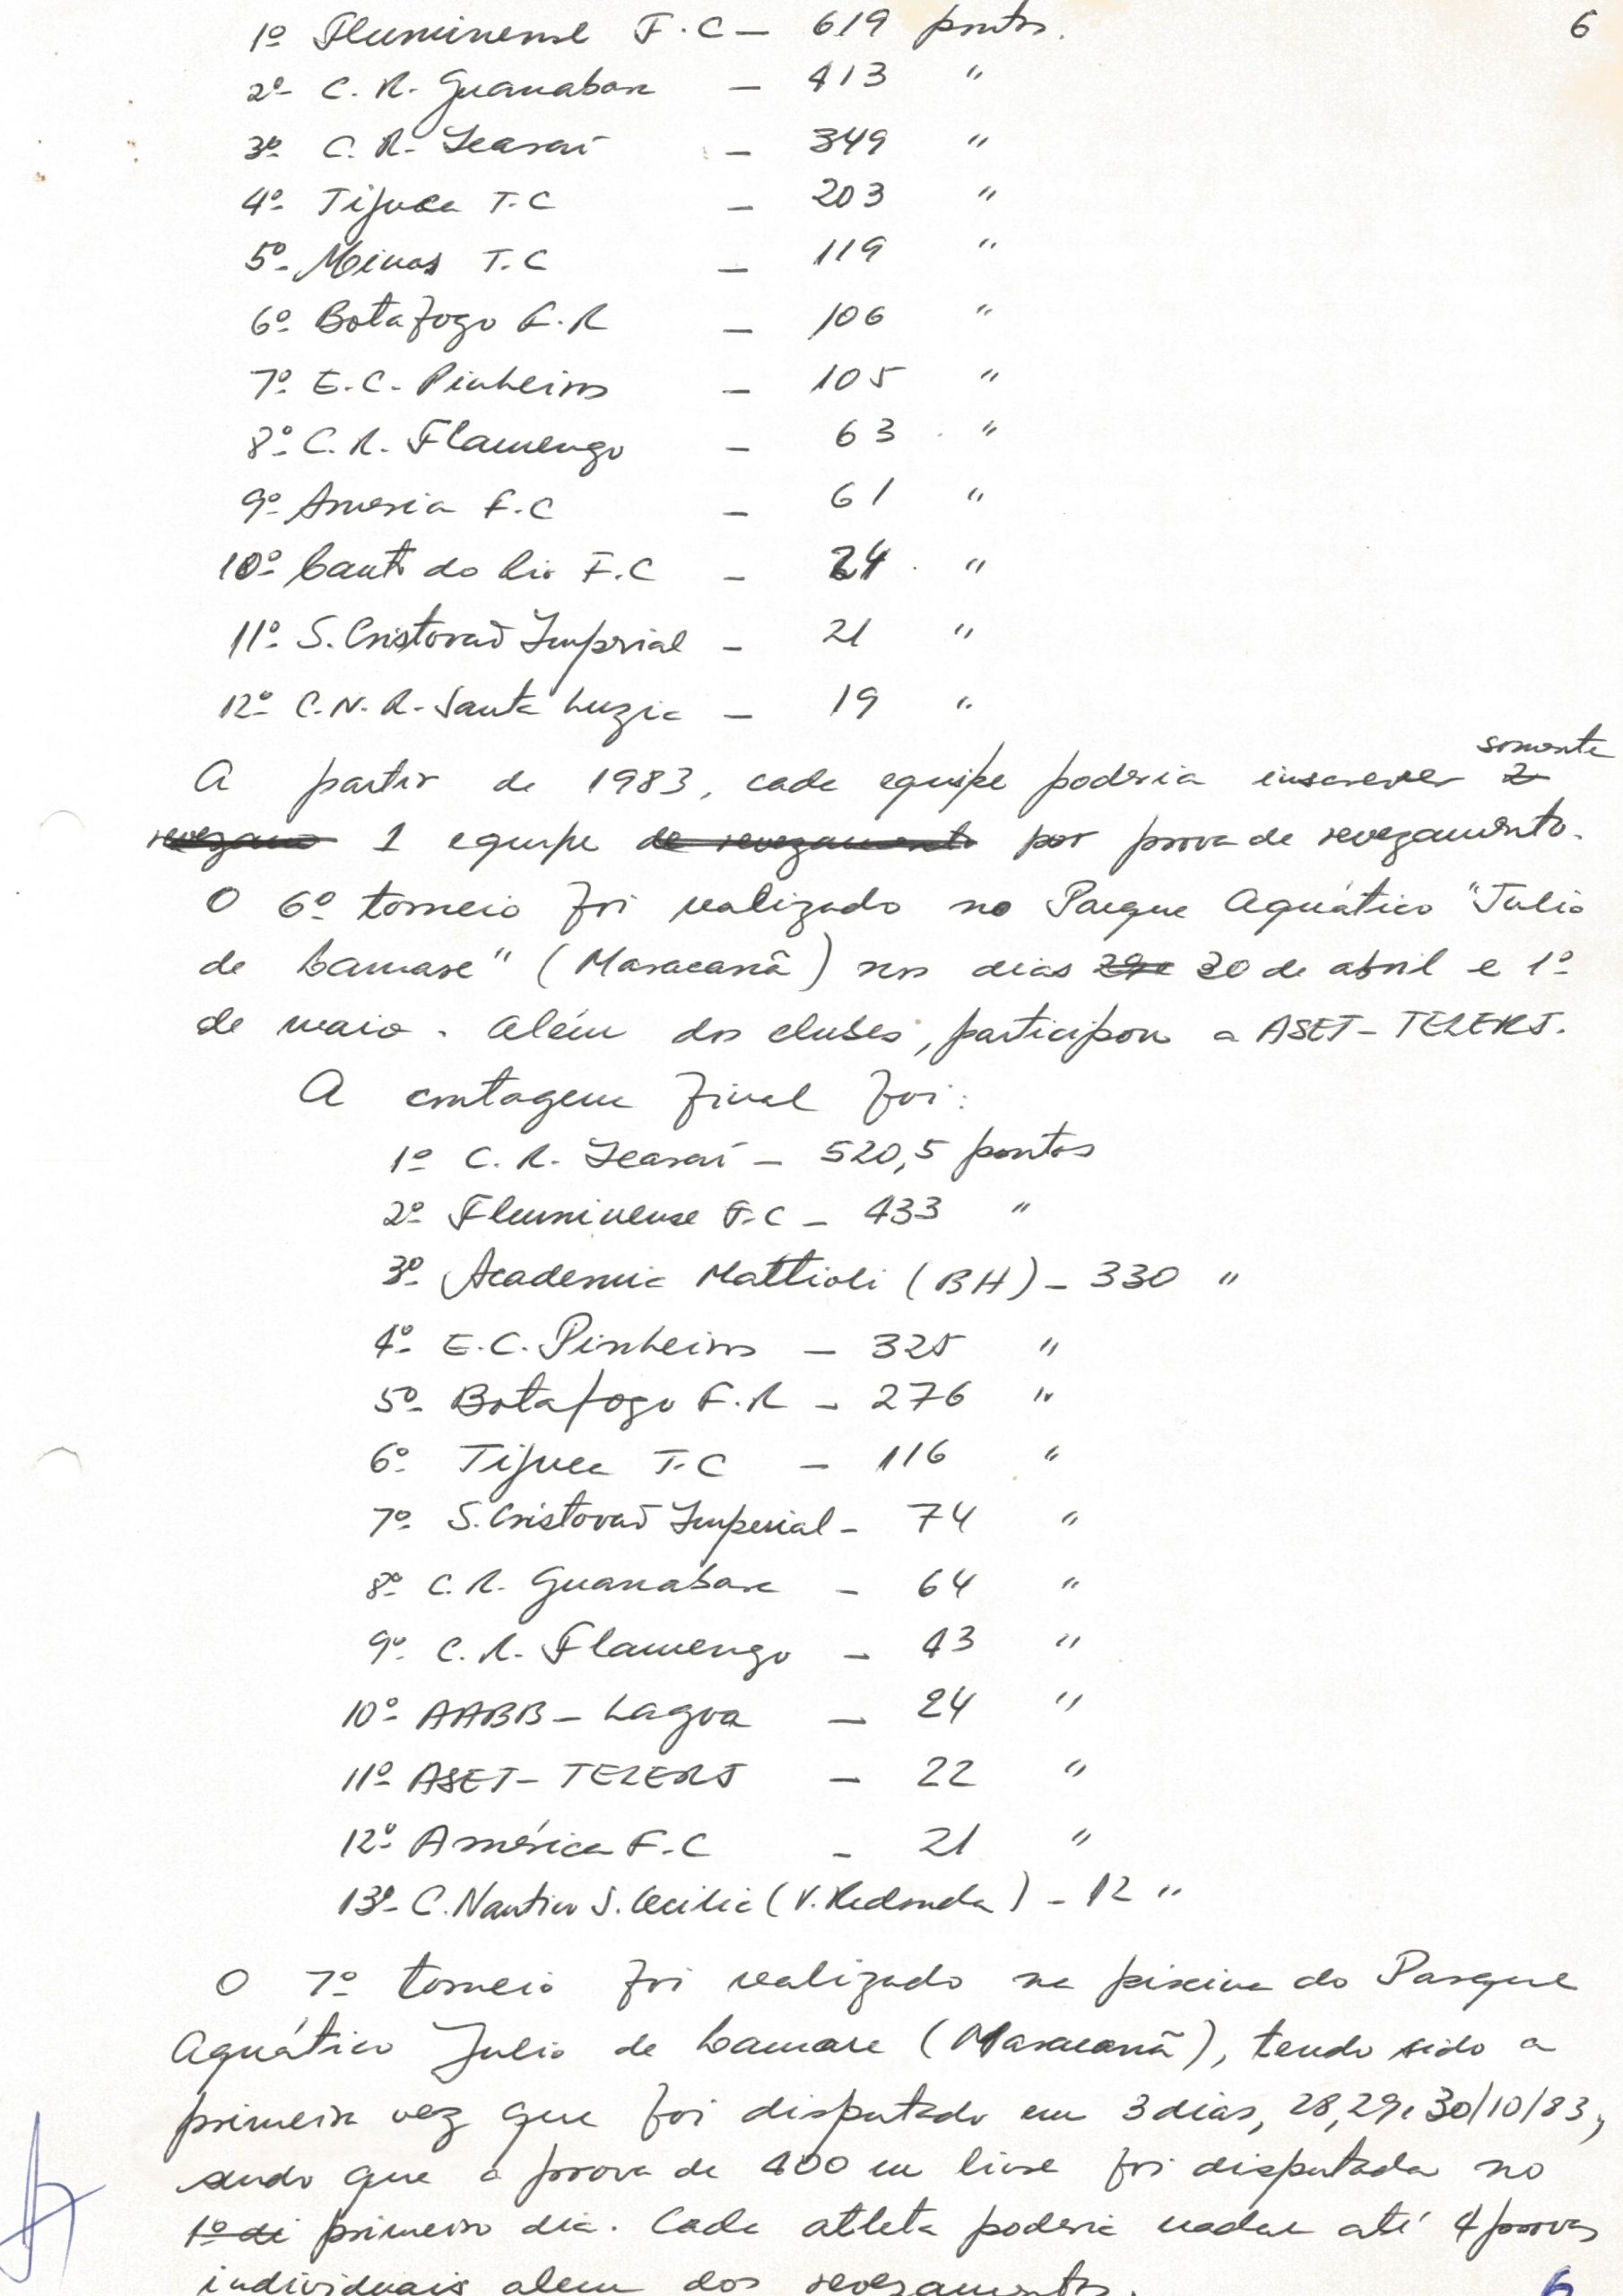 6
1º Fluminense F.C — 619 pontos.
2º C.R. Guanabara — 413 "
3º C.R. Icaraí — 349 "
4º Tijuca T.C — 203 "
5º Minas T.C — 119 "
6º Botafogo F.R — 106 "
7º E.C. Pinheiros — 105 "
8º C.R. Flamengo — 63 "
9º America F.C — 61 "
10º Canto do Rio F.C — 24 "
11º S. Cristovão Imperial — 21 "
12º C.N.R. Santa Luzia — 19 "
somente
A partir de 1983, cada equipe poderia inscrever 2
revezame 1 equipe de revezamento por prova de revezamento.
O 6º torneio foi realizado no Parque Aquático "Julio
de Lamare" (Maracanã) nos dias 29 e 30 de abril e 1º
de maio. Além dos clubes, participou a ASET-TELERJ.
A contagem final foi:
1º C.R. Icaraí — 520,5 pontos
2º Fluminense F.C — 433 "
3º Academia Mattioli (BH) — 330 "
4º E.C. Pinheiros — 325 "
5º Botafogo F.R — 276 "
6º Tijuca T.C — 116 "
7º S. Cristovão Imperial — 74 "
8º C.R. Guanabara — 64 "
9º C.R. Flamengo — 43 "
10º AABB — Lagoa — 24 "
11º ASET — TELERJ — 22 "
12º América F.C — 21 "
13º C. Nautico S. Cecilia (V. Redonda) — 12 "
O 7º torneio foi realizado na piscina do Parque
Aquático Julio de Lamare (Maracanã), tendo sido a
primeira vez que foi disputado em 3 dias, 28, 29 e 30/10/83,
sendo que a prova de 400 m livre foi disputada no
1º di primeiro dia. Cada atleta poderia nadar até 4 provas
individuais alem dos revezamentos.
6